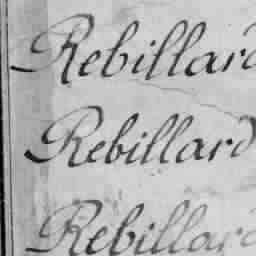 Rebillard
Rebillard
Rebillard